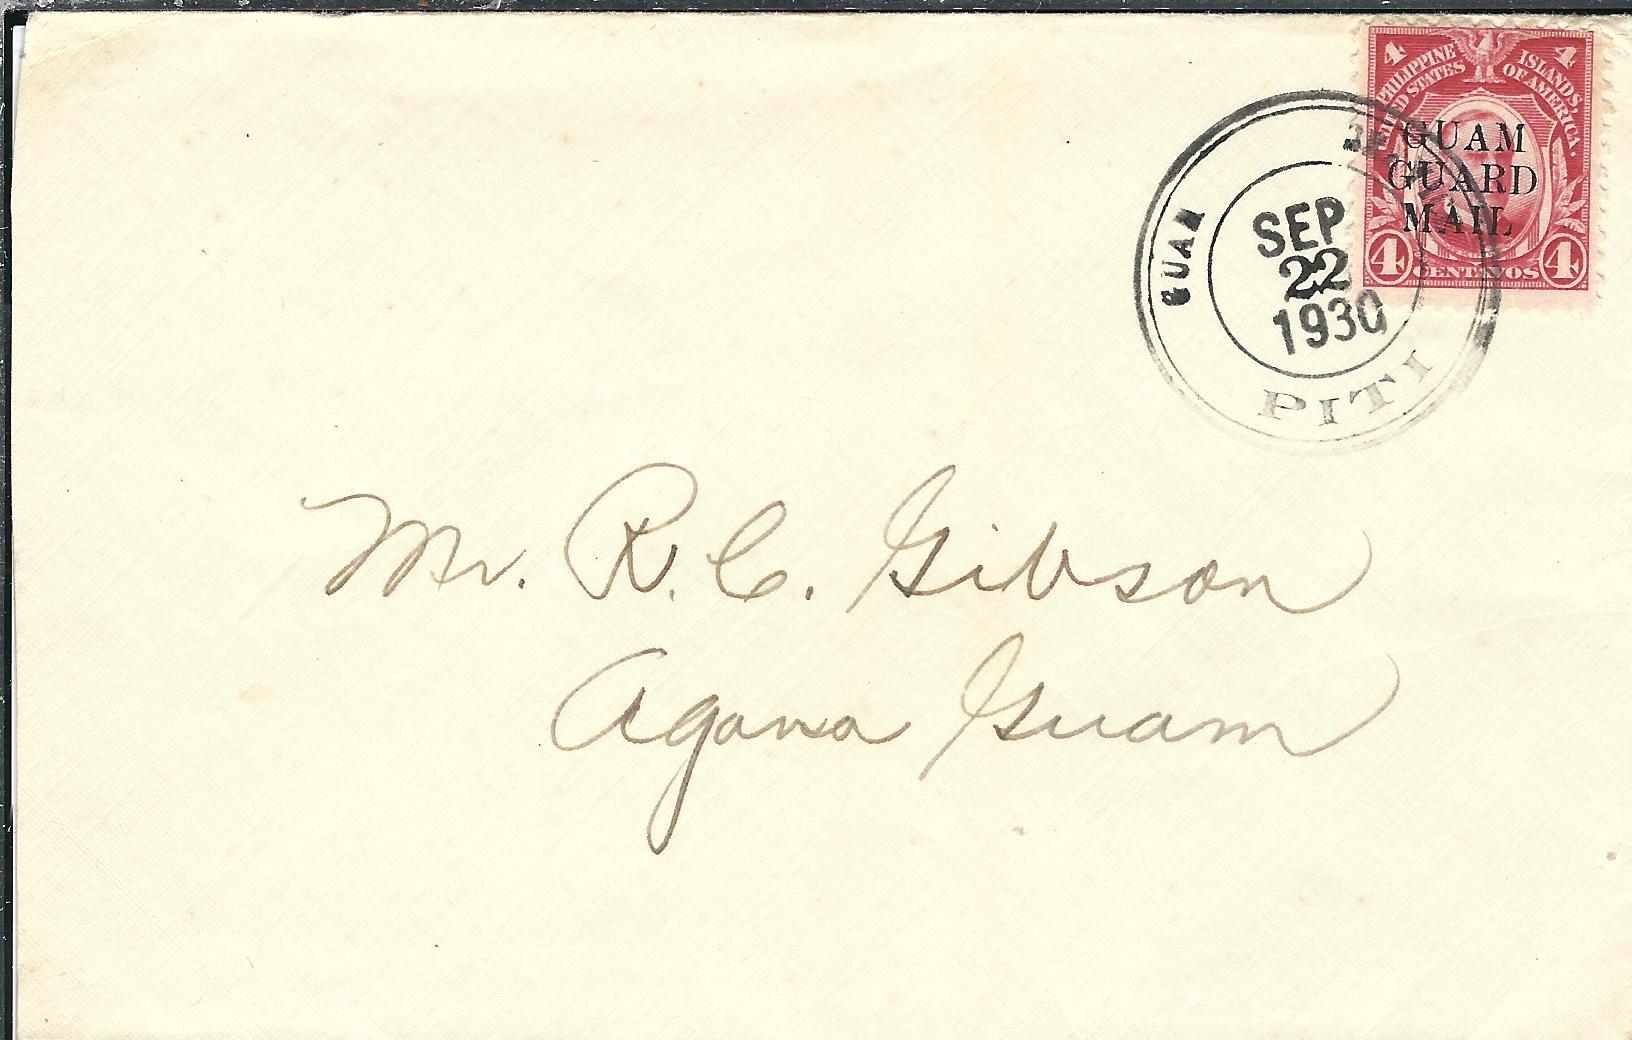 4 4
PHILIPPINE ISLANDS
STATES OF AMERICA.
GUAM
GUARD
MAIL
4 CENTAVOS 4
GUAM
SEP
22
1930
PITI
Mr. R. C. Gibson
Agana Guam